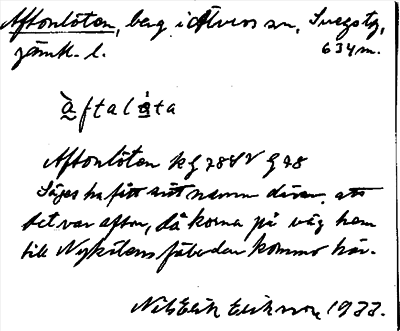 Aftonlöten, berg i Älvros sn, Svegs tg,
jämtl. l. 634 m.
àftalǻta
Aftonlöten kg 7842 g 78
Säges ha fått sitt namn därav, att
det var afton, då korna på väg hem
till Nykölens fäbodar kommo här.
Nils Erik Eriksson, 1933.